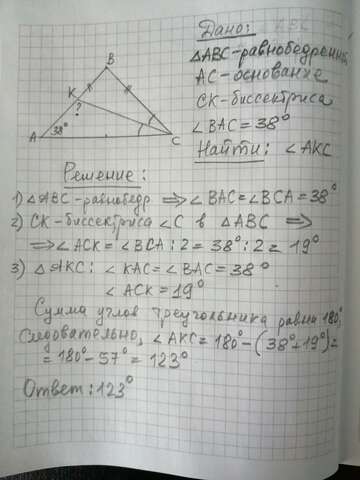 Дано:
△ABC-равнобедренный
AC-основание
CK-биссектриса
∠BAC=38°
Найти: ∠AKC
B
K
?
A
38°
C
Решение:
1) △ABC-равнобедр ⟹ ∠BAC=∠BCA=38°
2) CK-биссектриса ∠C в △ABC ⟹
⟹ ∠ACK=∠BCA:2=38°:2=19°
3) △AKC: ∠KAC=∠BAC=38°
∠ACK=19°
Сумма углов треугольника равна 180°,
следовательно, ∠AKC=180°-(38°+19°)=
=180°-57°=123°
Ответ: 123°